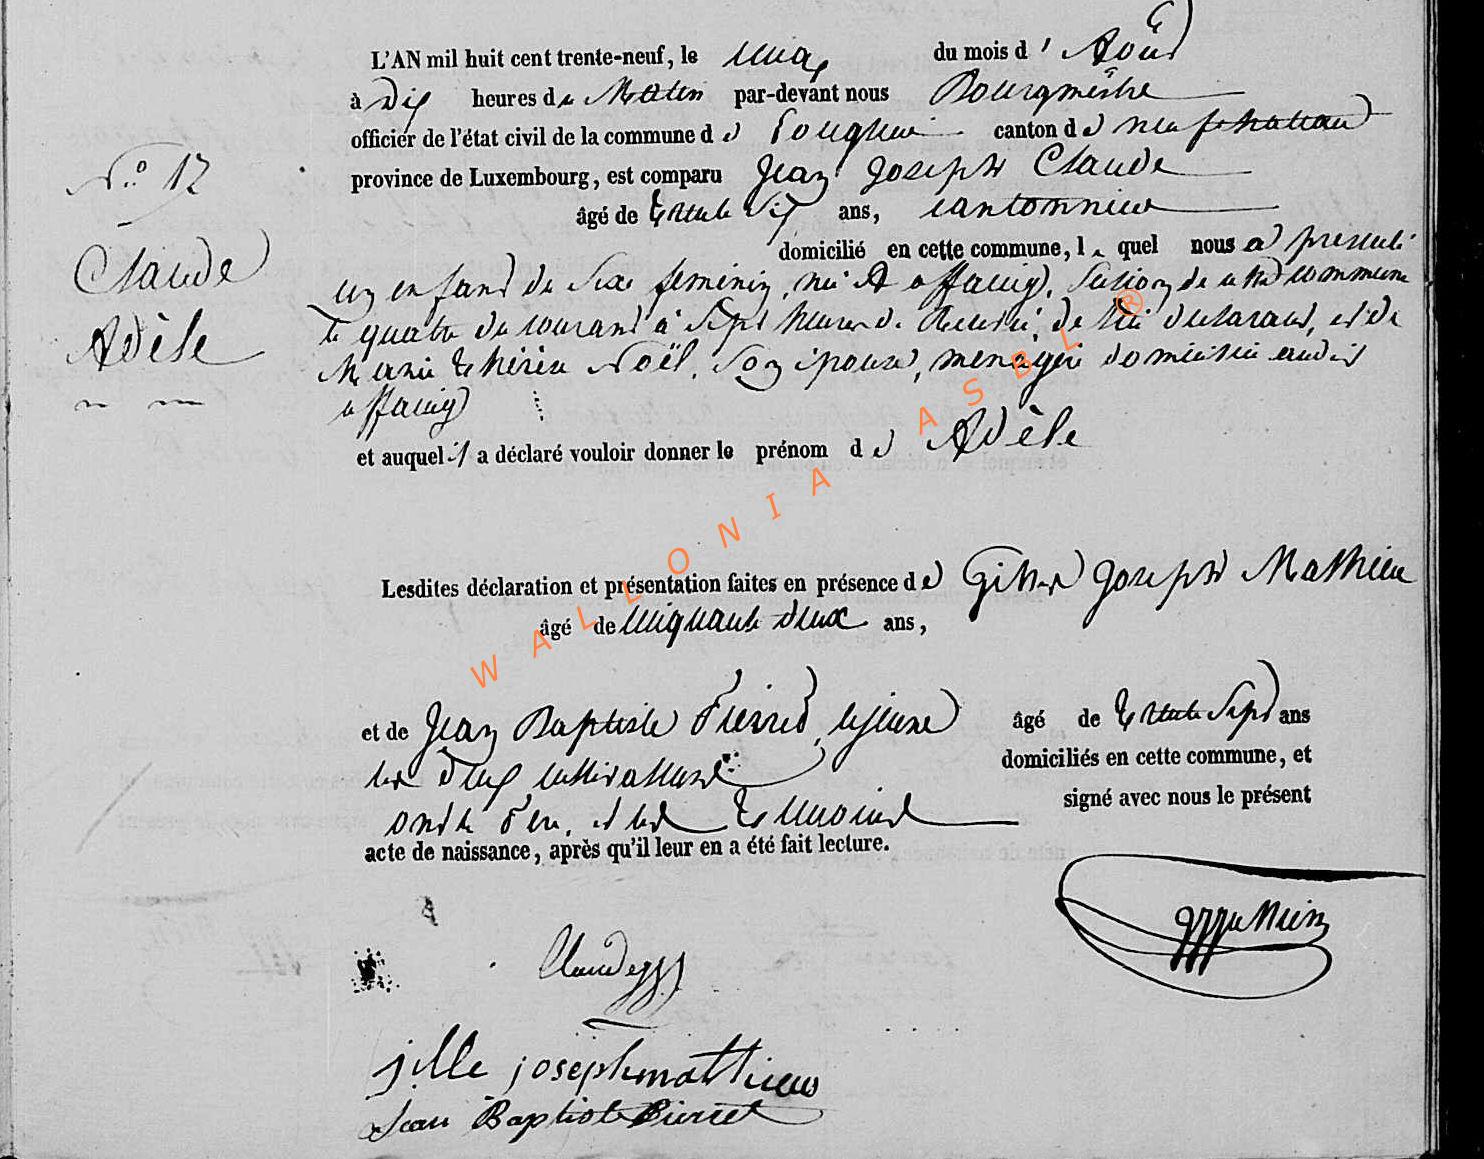 L'AN mil huit cent trente-neuf, le cinq du mois d' Août
à dix heures du Matin par-devant nous Bourgmestre
officier de l'état civil de la commune de canton de neufchateau
N.o 12
province de Luxembourg, est comparu Jean Joseph Claude
âgé de trente six ans, cantonnier
domicilié en cette commune, le quel nous a présenté
Claude
un enfant du Sexe feminin, né à offaing, Section de cette commune
Adèle
le quatre du courant à Sept heures de de lui declarant, et de
Marie thérèse Noël, Son épouse, menagère domiciliée audit
offaing
et auquel il a déclaré vouloir donner le prénom de Adèle
WALLONIA ASBL ®
Lesdites déclaration et présentation faites en présence de Gilles Joseph Mathieu
âgé de cinquante deux ans,
et de Jean Baptiste Pierret, lejeune âgé de trente Sept ans
les deux cultivateurs domiciliés en cette commune, et
ont le Père, et les temoins signé avec nous le présent
acte de naissance, après qu'il leur en a été fait lecture.
Claude JJ
jille joseph mathieu
Jean Baptiste Pierret